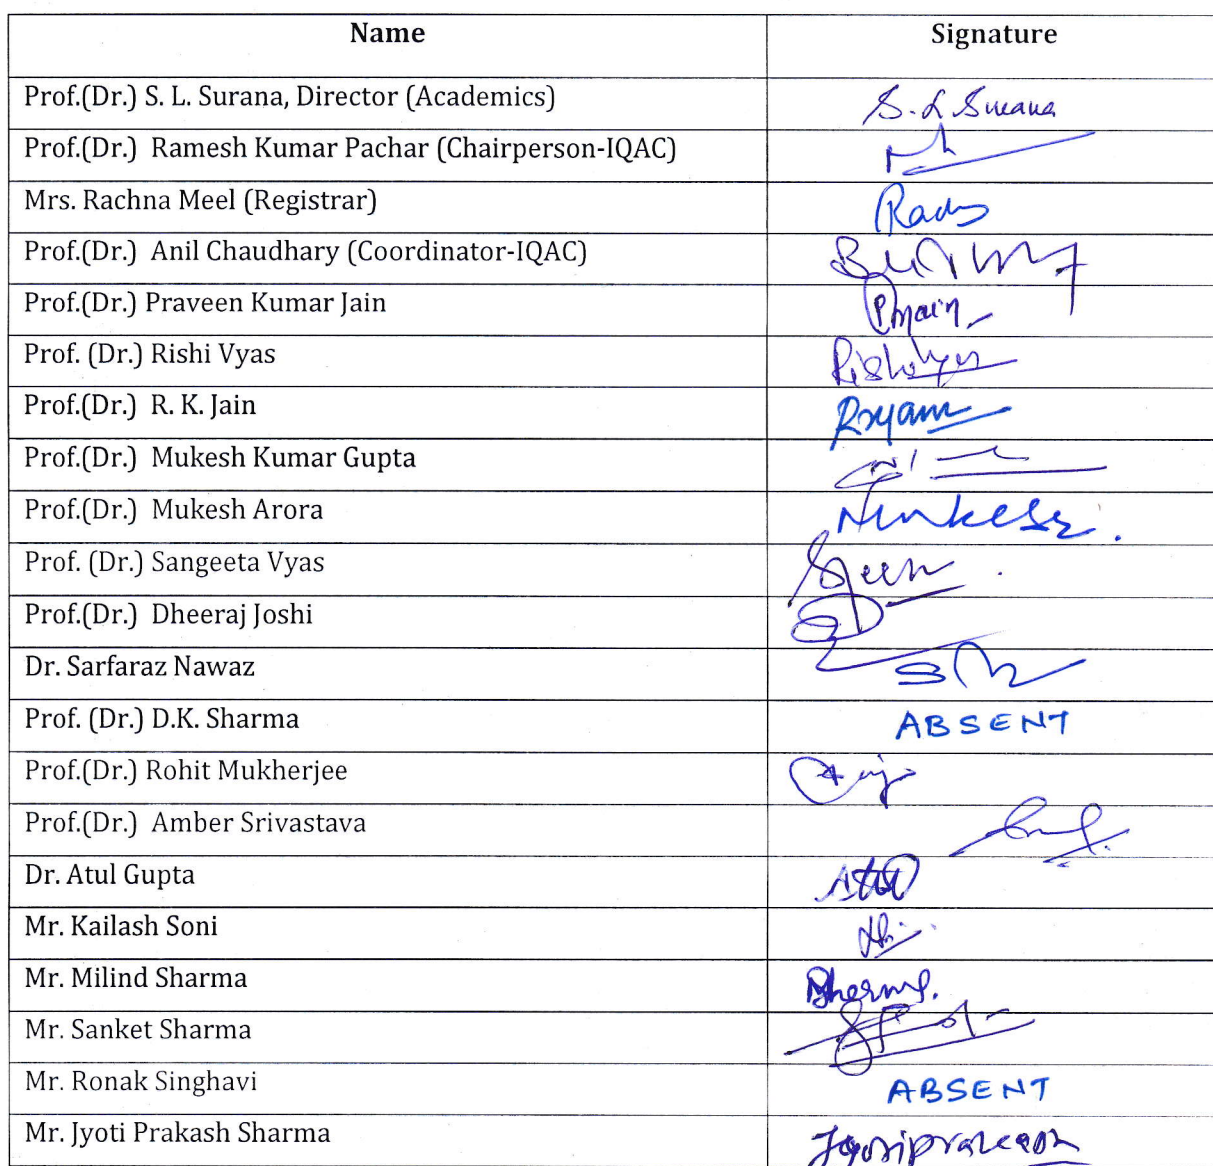 Name Signature
Prof.(Dr.) S. L. Surana, Director (Academics) S. L Surana
Prof.(Dr.) Ramesh Kumar Pachar (Chairperson-IQAC)
Mrs. Rachna Meel (Registrar)
Prof.(Dr.) Anil Chaudhary (Coordinator-IQAC)
Prof.(Dr.) Praveen Kumar Jain
Prof. (Dr.) Rishi Vyas
Prof.(Dr.) R. K. Jain
Prof.(Dr.) Mukesh Kumar Gupta
Prof.(Dr.) Mukesh Arora
Prof. (Dr.) Sangeeta Vyas
Prof.(Dr.) Dheeraj Joshi
Dr. Sarfaraz Nawaz
Prof. (Dr.) D.K. Sharma ABSENT
Prof.(Dr.) Rohit Mukherjee
Prof.(Dr.) Amber Srivastava
Dr. Atul Gupta
Mr. Kailash Soni
Mr. Milind Sharma
Mr. Sanket Sharma
Mr. Ronak Singhavi ABSENT
Mr. Jyoti Prakash Sharma Jyotiprakash